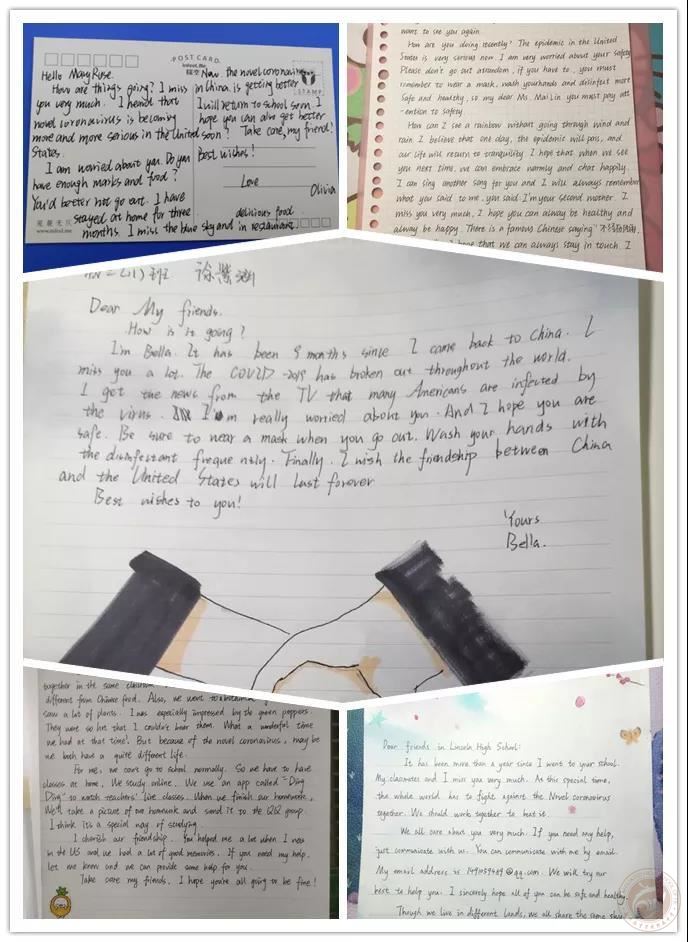 POST CARD
Hello Mary Rose.
How are things going? I miss
you very much. I heard that
novel coronavirus is becoming
more and more serious in the United
States.
I am worried about you. Do you
have enough masks and food?
You'd beeter not go out. I have
stayed at home for three
months. I miss the blue sky and
delicious food
in restaurant.
Now, the novel coronavirus
in China is getting better
I will return to school soon. I
hope you can also get better
soon! Take care, my friend!
Best wishes!
Love
Olivia
STAMP
want to see you again.
How are you doing recently? The epidemic in the United
States is very serious now. I am very worried about your safety
Please don't go out at random, if you have to, you must
remember to wear a mask, wash your hands and disinfect more
Safe and healthy, so my dear Ms. Mai Lin you must pay att
-ention to safety.
How can I see a rainbow without going through wind and
rain. I believe that one day, the epidemic will pass, and
our life will return to tranquility. I hope that when we see
you next time, we can embrace warmly and chat happily.
I can sing another song for you and I will always remember
what you said to me. you said: I'm your second mother. I
miss you very much, I hope you can alway be healthy and
alway be happy. There is a famous Chinese saying
hope that we can always stay in touch. I
Dear My friends.
How is it going?
I'm Bella. It has been 9 months since I came back to China. I
miss you a lot. The COVID-2019 has broken out throughout the world.
I get the news from the TV that many Americans are infected by
the virus. I'm really worried about you. And I hope you are
safe. Be sure to wear a mask when you go out. Wash your hands with
the disinfectant frequently. Finally. I wish the friendship between China
and the United States will last forever
Best wishes to you!
Yours
Bella.
together in the same classroom
different from Chinese food. Also, we went to
saw a lot of plants. I was especially impressed by the green peppers.
They were so hot that I couldn't bear them. What a wonderful time
we had at that time! But because of the novel coronavirus, may be
we both have a quite different life.
For me, we can't go to school normally. So we have to have
classes at home. We study online. We use an app called "Ding
Ding" to watch teachers' live classes. When we finish our homework,
We'll take a picture of our homework and send it to the QQ group.
I think it's a special way of studying.
I cherish our friendship. You helped me a lot when I was
in the US and we had a lot of good memories. If you need my help,
let me know and we can provide some help for you.
Take care my friends. I hope you're all going to be fine!
Dear friends in Lincoln High School:
It has been more than a year since I went to your school.
My classmates and I miss you very much. At this special time,
the whole world has to fight against the Novel coronavirus
together. We should work together to beat it.
We all care about you very much. If you need any help,
just communicate with us. You can communicate with me by email.
My email address is
@qq.com. We will try our
best to help you. I sincerely hope all of you can be safe and healthy.
Though we live in different lands, we all share the same